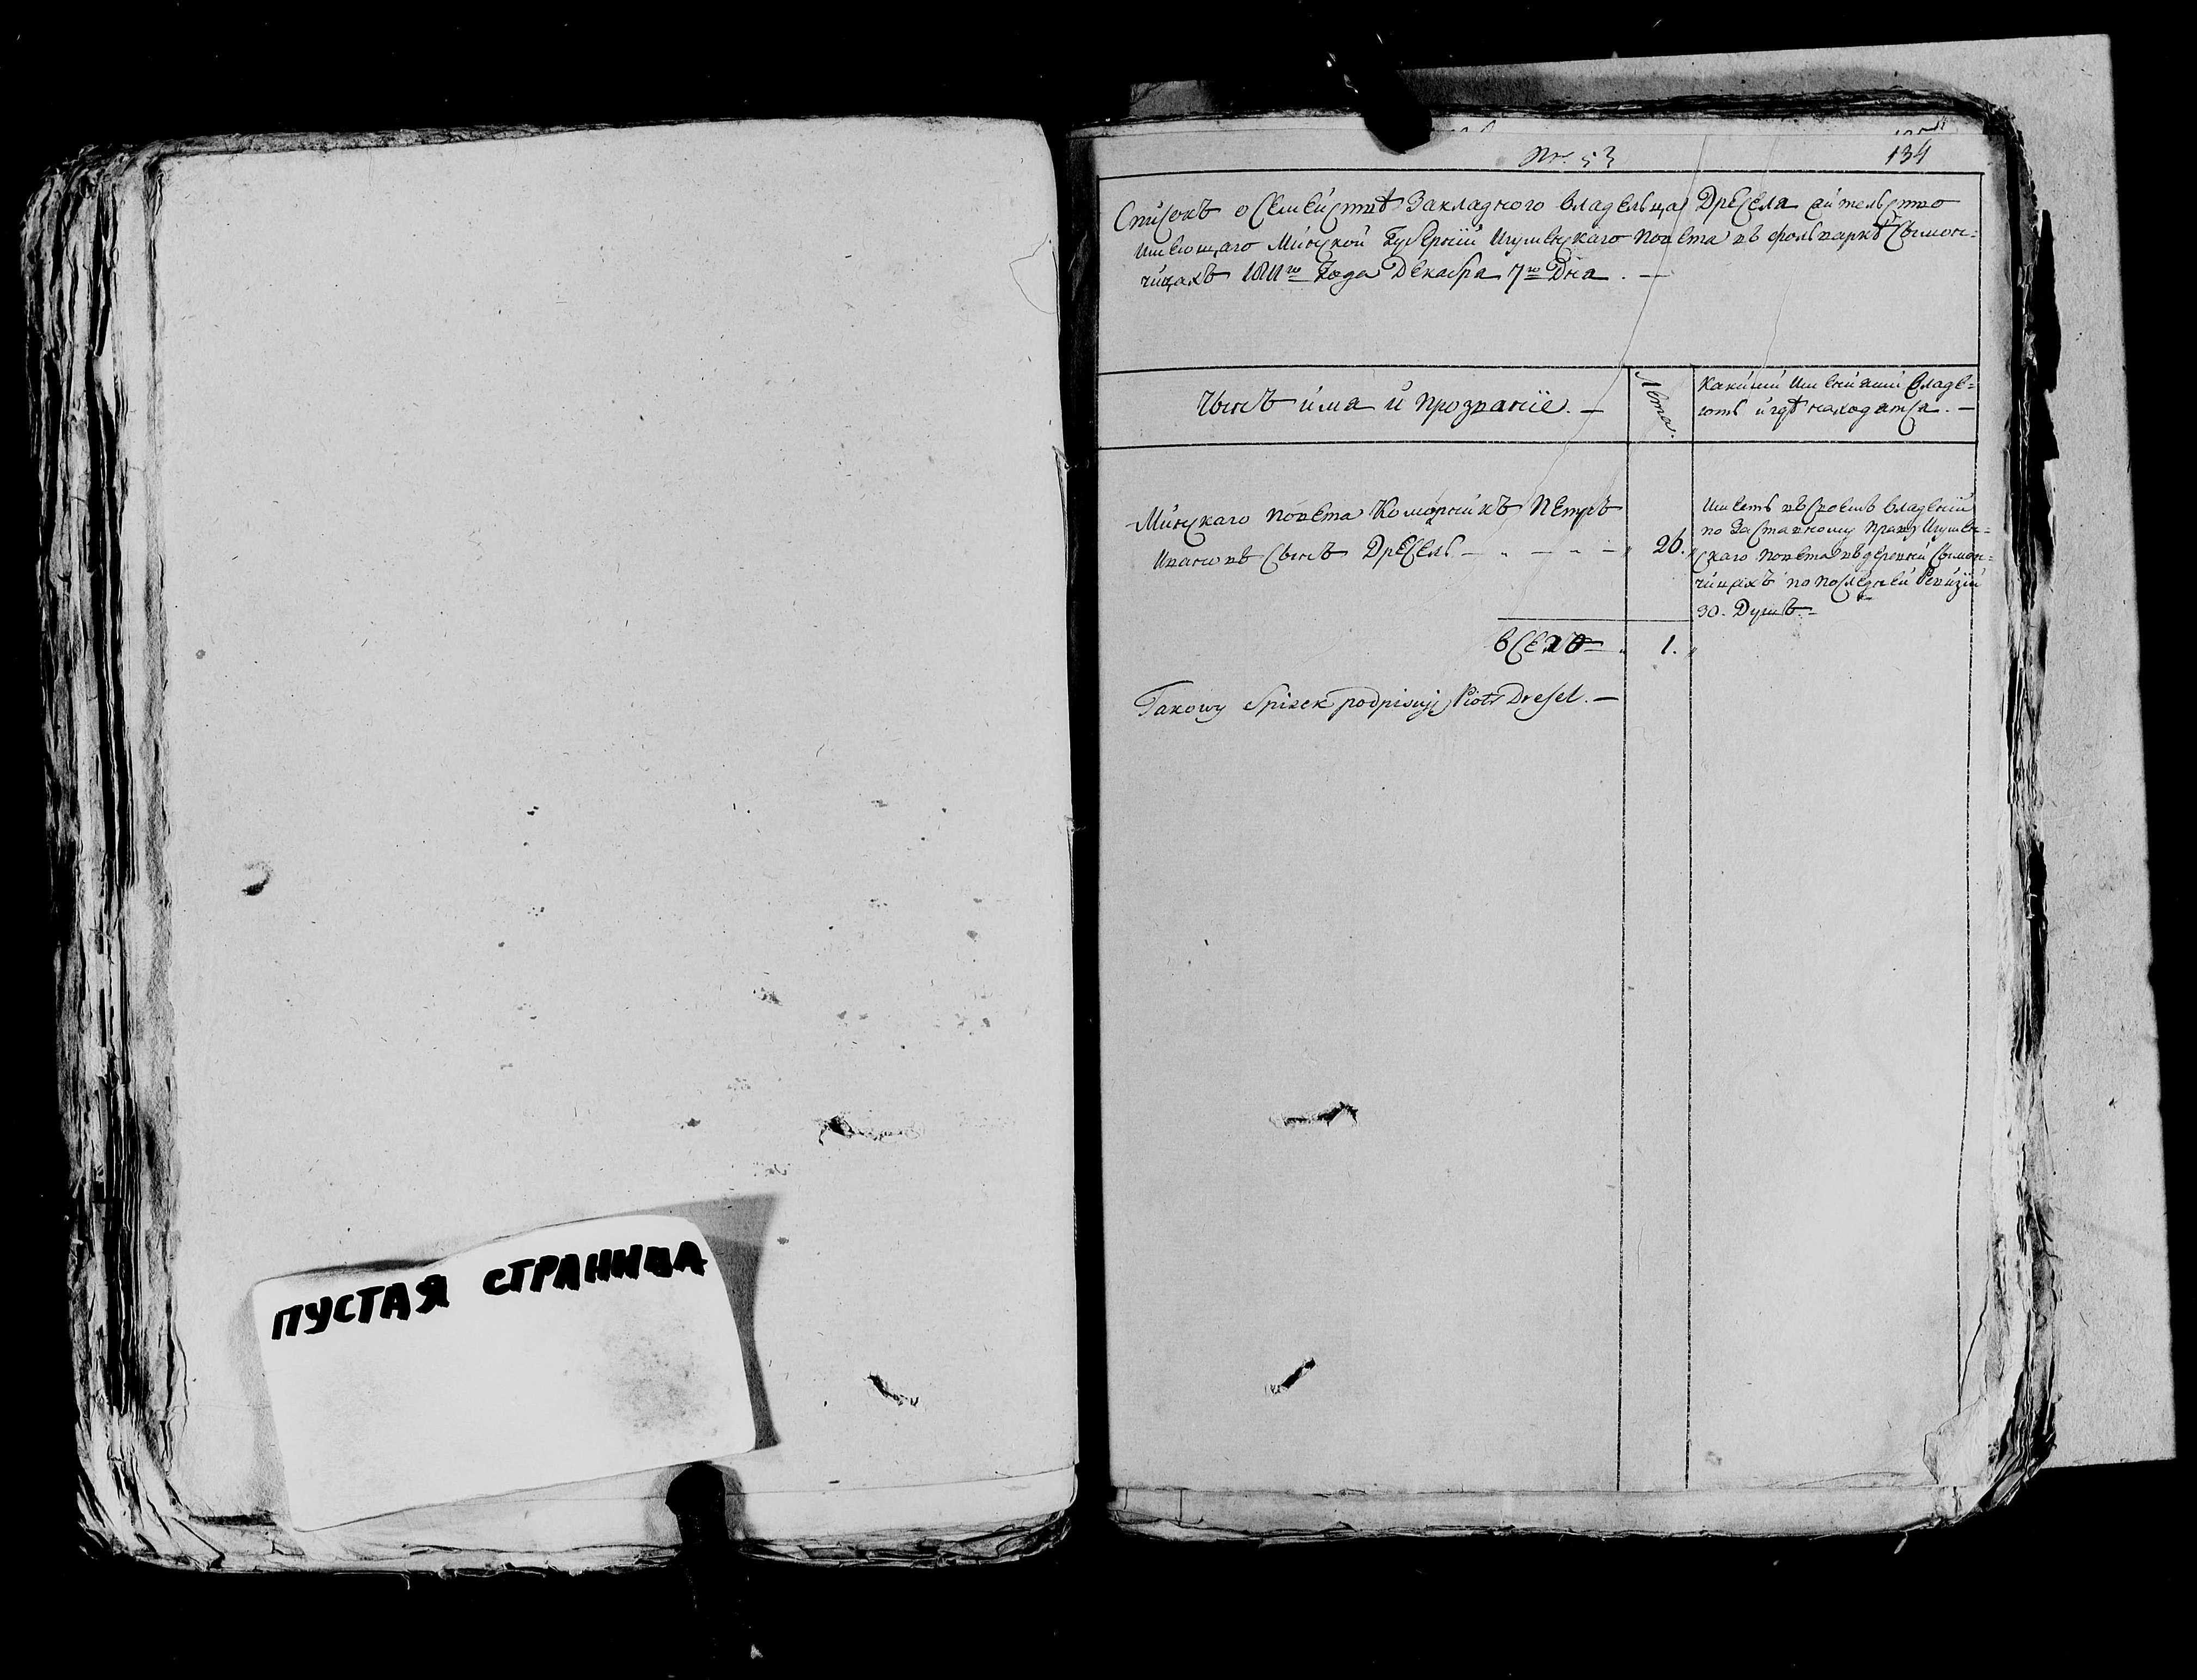 ПУСТАЯ СТРАНИЦА
Nr. 53
134
Списокъ о Семействѣ Закладного владельца Дреселя жительство
имеющаго Минской Губерніи Игуменскаго повета въ фольваркѣ Сымон=
чицахъ 1811го Года Декабра 7го Дна. —
Чынъ има и Прозваніе. —
Лета.
Какими имениями владе=
ютъ и гдѣ находатса. —
Минскаго повета Коморникъ Петръ
Ивановъ Сынъ Дресель — . — . —
26.
Имеетъ въ своемъ владении
по Заставному праву Игумен=
скаго повета въ деревни Сымон=
чицахъ по последней Ревизіи
30. Душъ. =
всего
1.
Takowy Spisek podpisuję Piotr Dresel. —